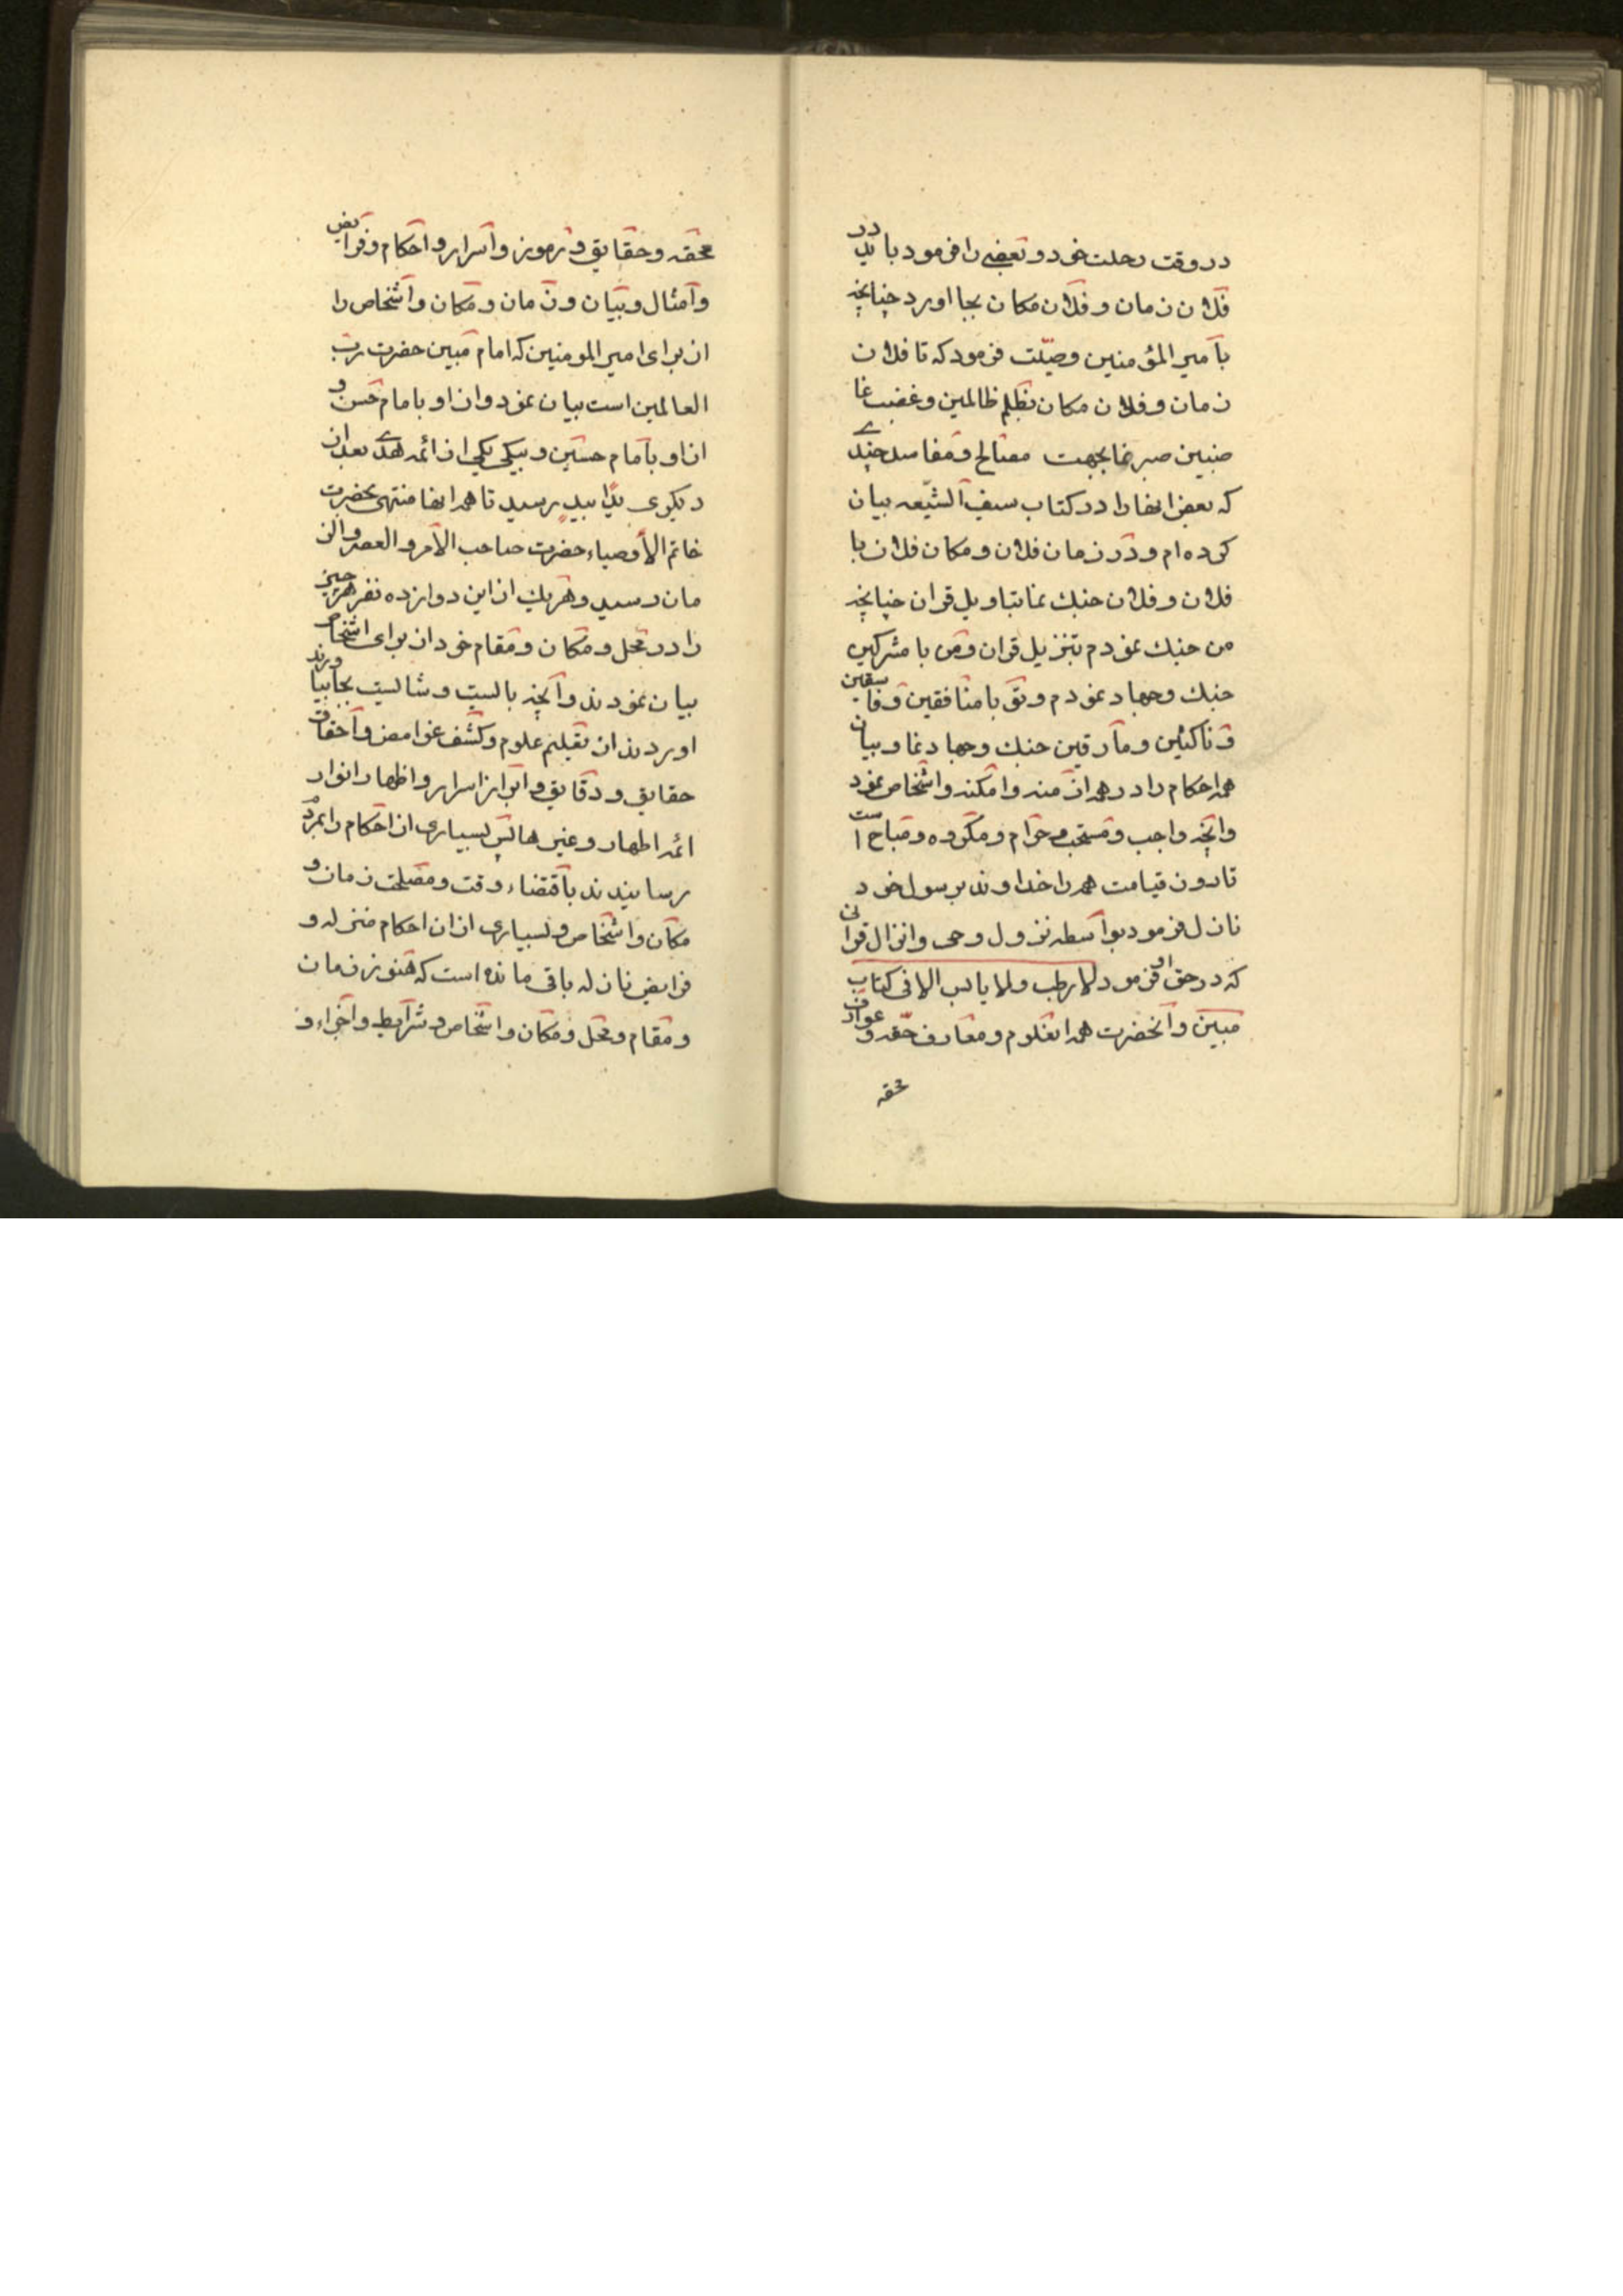 در وقت رحلت خود و بعضی را فرمود باید در
فلان زمان و فلان مکان بجا اورد چنانچه
بامیر المؤمنین وصیّت فرمود که تا فلان
زمان و فلان مکان بظلم ظالمین و غصب غا
صبین صبر نما بجهت مصالح و مفاسد چندی
که بعض انها را در کتاب سیف الشّیعه بیان
کرده ام و در زمان فلان و مکان فلان با
فلان و فلان جنك نما بتاویل قران چنانچه
من جنك نمودم بتنزیل قران و من با مشرکین
جنك و جهاد نمودم و تو با منافقین و فاسقین
و ناکثین و مارقین جنك و جهاد نما و بیان
همه احکام را در همه ازمنه و امکنه و اشخاص نمود
وانچه واجب و مستحب و حرام و مکروه و مباح است
تا روز قیامت همه را خداوند برسول خود
نازل فرمود بواسطه نزول وحی و انزال قرانی
که در حق او فرمود لا رطب ولا یابس الا فی کتاب
مبین و انحضرت همه انعلوم و معارف حقه و عوارف
محقه
محقه و حقایق و رموز و اسرار و احکام و فرایض
و امثال و بیان و زمان و مکان و اشخاص را
از برای امیر المومنین که امام مبین حضرت رب
العالمین است بیان نمود و از او بامام حسن و
از او بامام حسین و بیکی یکی از ائمه هدی بعد از
دیگری یدا بید رسید تا همه انها منتهی بحضرت
خاتم الأوصیاء حضرت صاحب الأمر و العصر و الز
مان رسید و هر یك از این دوازده نفر هر چیز
را در محل و مکان و مقام خود از برای اشخاص
بیان نمودند و آنچه بایست و شایست بجابیا و رند
اوردند از تعلیم علوم و کشف غوامض و احقاق
حقایق و دقایق و ابراز اسرار و اظهار انوار
ائمه اطهار و غیر ها پس بسیاری از احکام را بمردم
رسانیدند باقتضاء وقت و مصلحت زمان و
مکان و اشخاص و بسیاری از ان احکام منزله و
فرایض نازله باقی مانده است که هنوز زمان
و مقام و محل و مکان و اشخاص و شرایط و اجزاء و